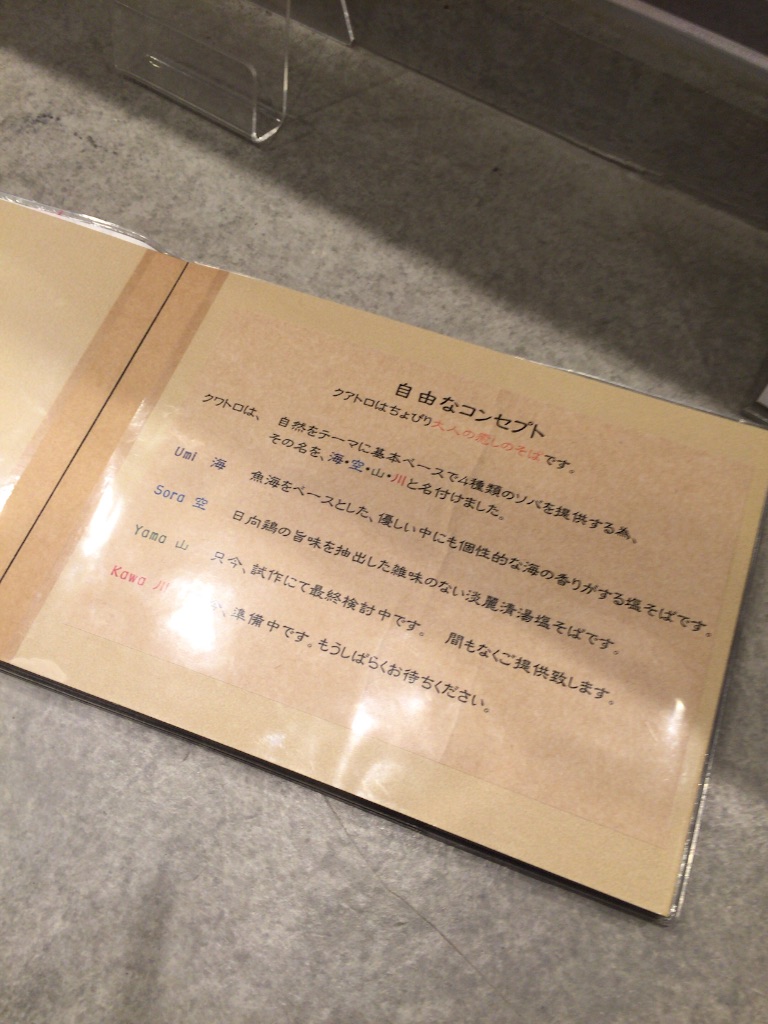 自由なコンセプト
クアトロはちょぴり大人の癒しのそばです。
クワトロは、 自然をテーマに基本ベースで4種類のソバを提供する為、
その名を、海・空・山・川と名付けました。
Umi 海 魚海をベースとした、優しい中にも個性的な海の香りがする塩そばです。
Sora 空 日向鶏の旨味を抽出した雑味のない淡麗清湯塩そばです。
Yama 山 只今、試作にて最終検討中です。 間もなくご提供致します。
Kawa 川 準備中です。もうしばらくお待ちください。